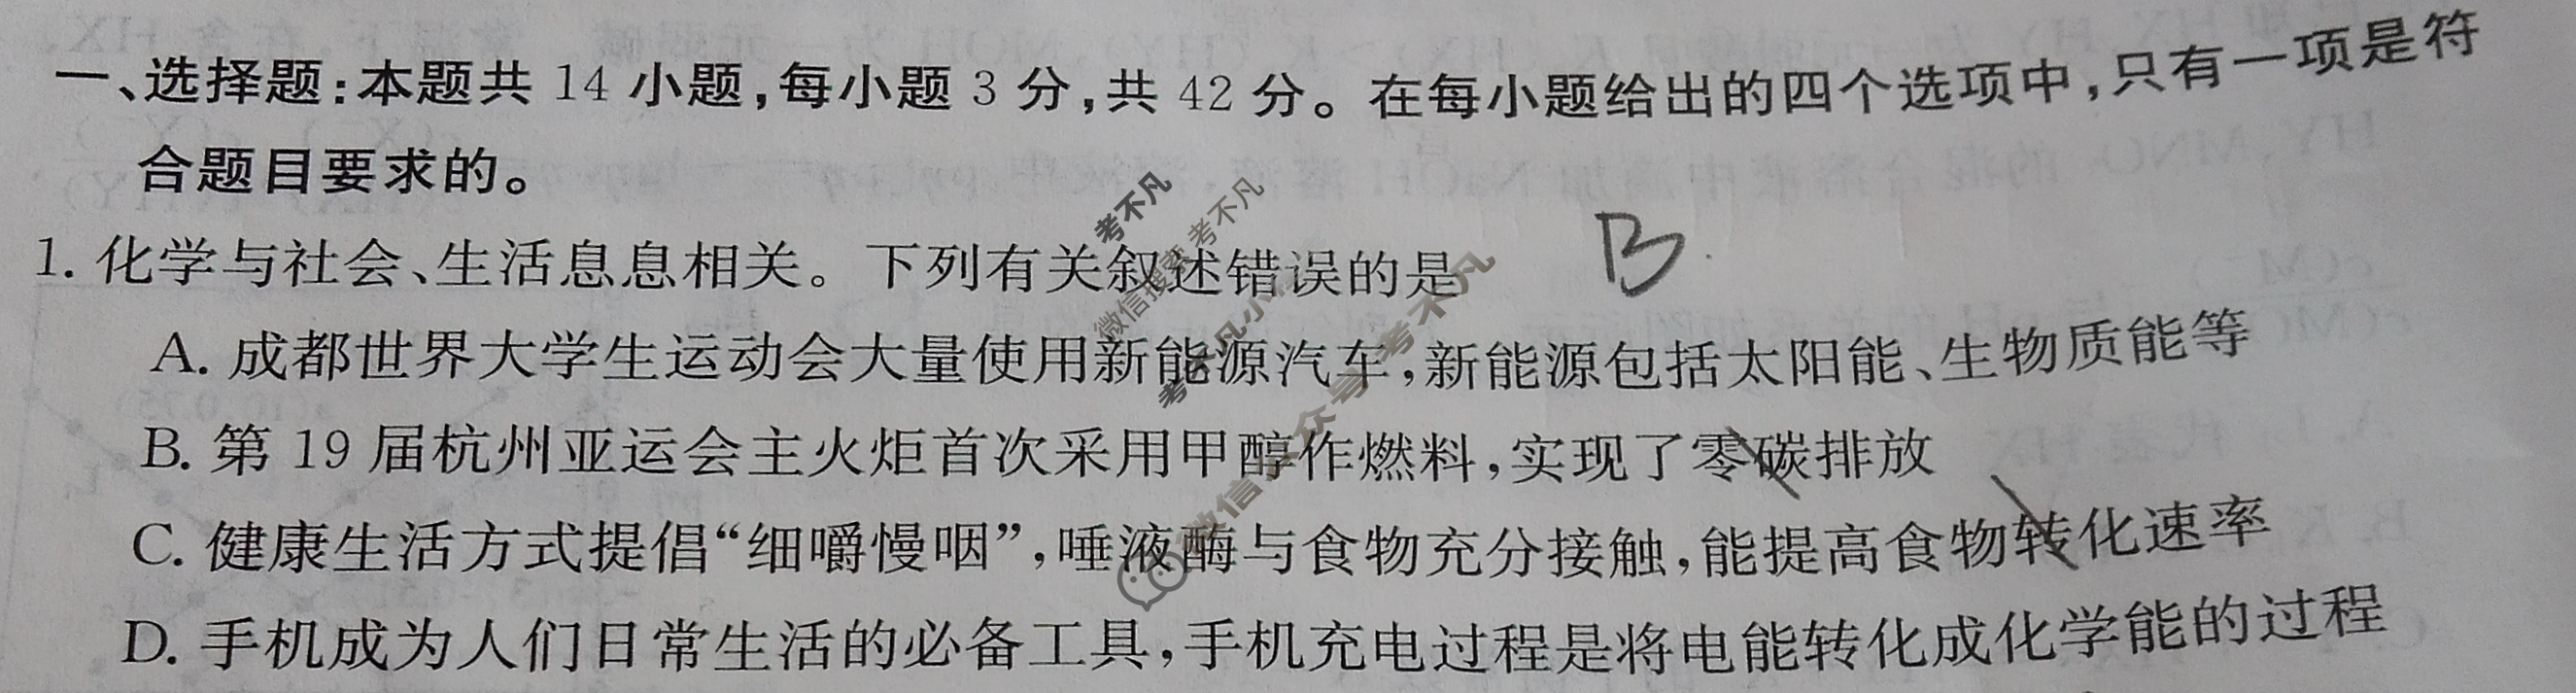 一、选择题:本题共 14 小题,每小题 3 分,共 42 分。在每小题给出的四个选项中,只有一项是符
合题目要求的。
1. 化学与社会、生活息息相关。下列有关叙述错误的是 B
A. 成都世界大学生运动会大量使用新能源汽车,新能源包括太阳能、生物质能等
B. 第 19 届杭州亚运会主火炬首次采用甲醇作燃料,实现了零碳排放
C. 健康生活方式提倡“细嚼慢咽”,唾液酶与食物充分接触,能提高食物转化速率
D. 手机成为人们日常生活的必备工具,手机充电过程是将电能转化成化学能的过程
考不凡
微信搜索考不凡
微信公众号 考不凡